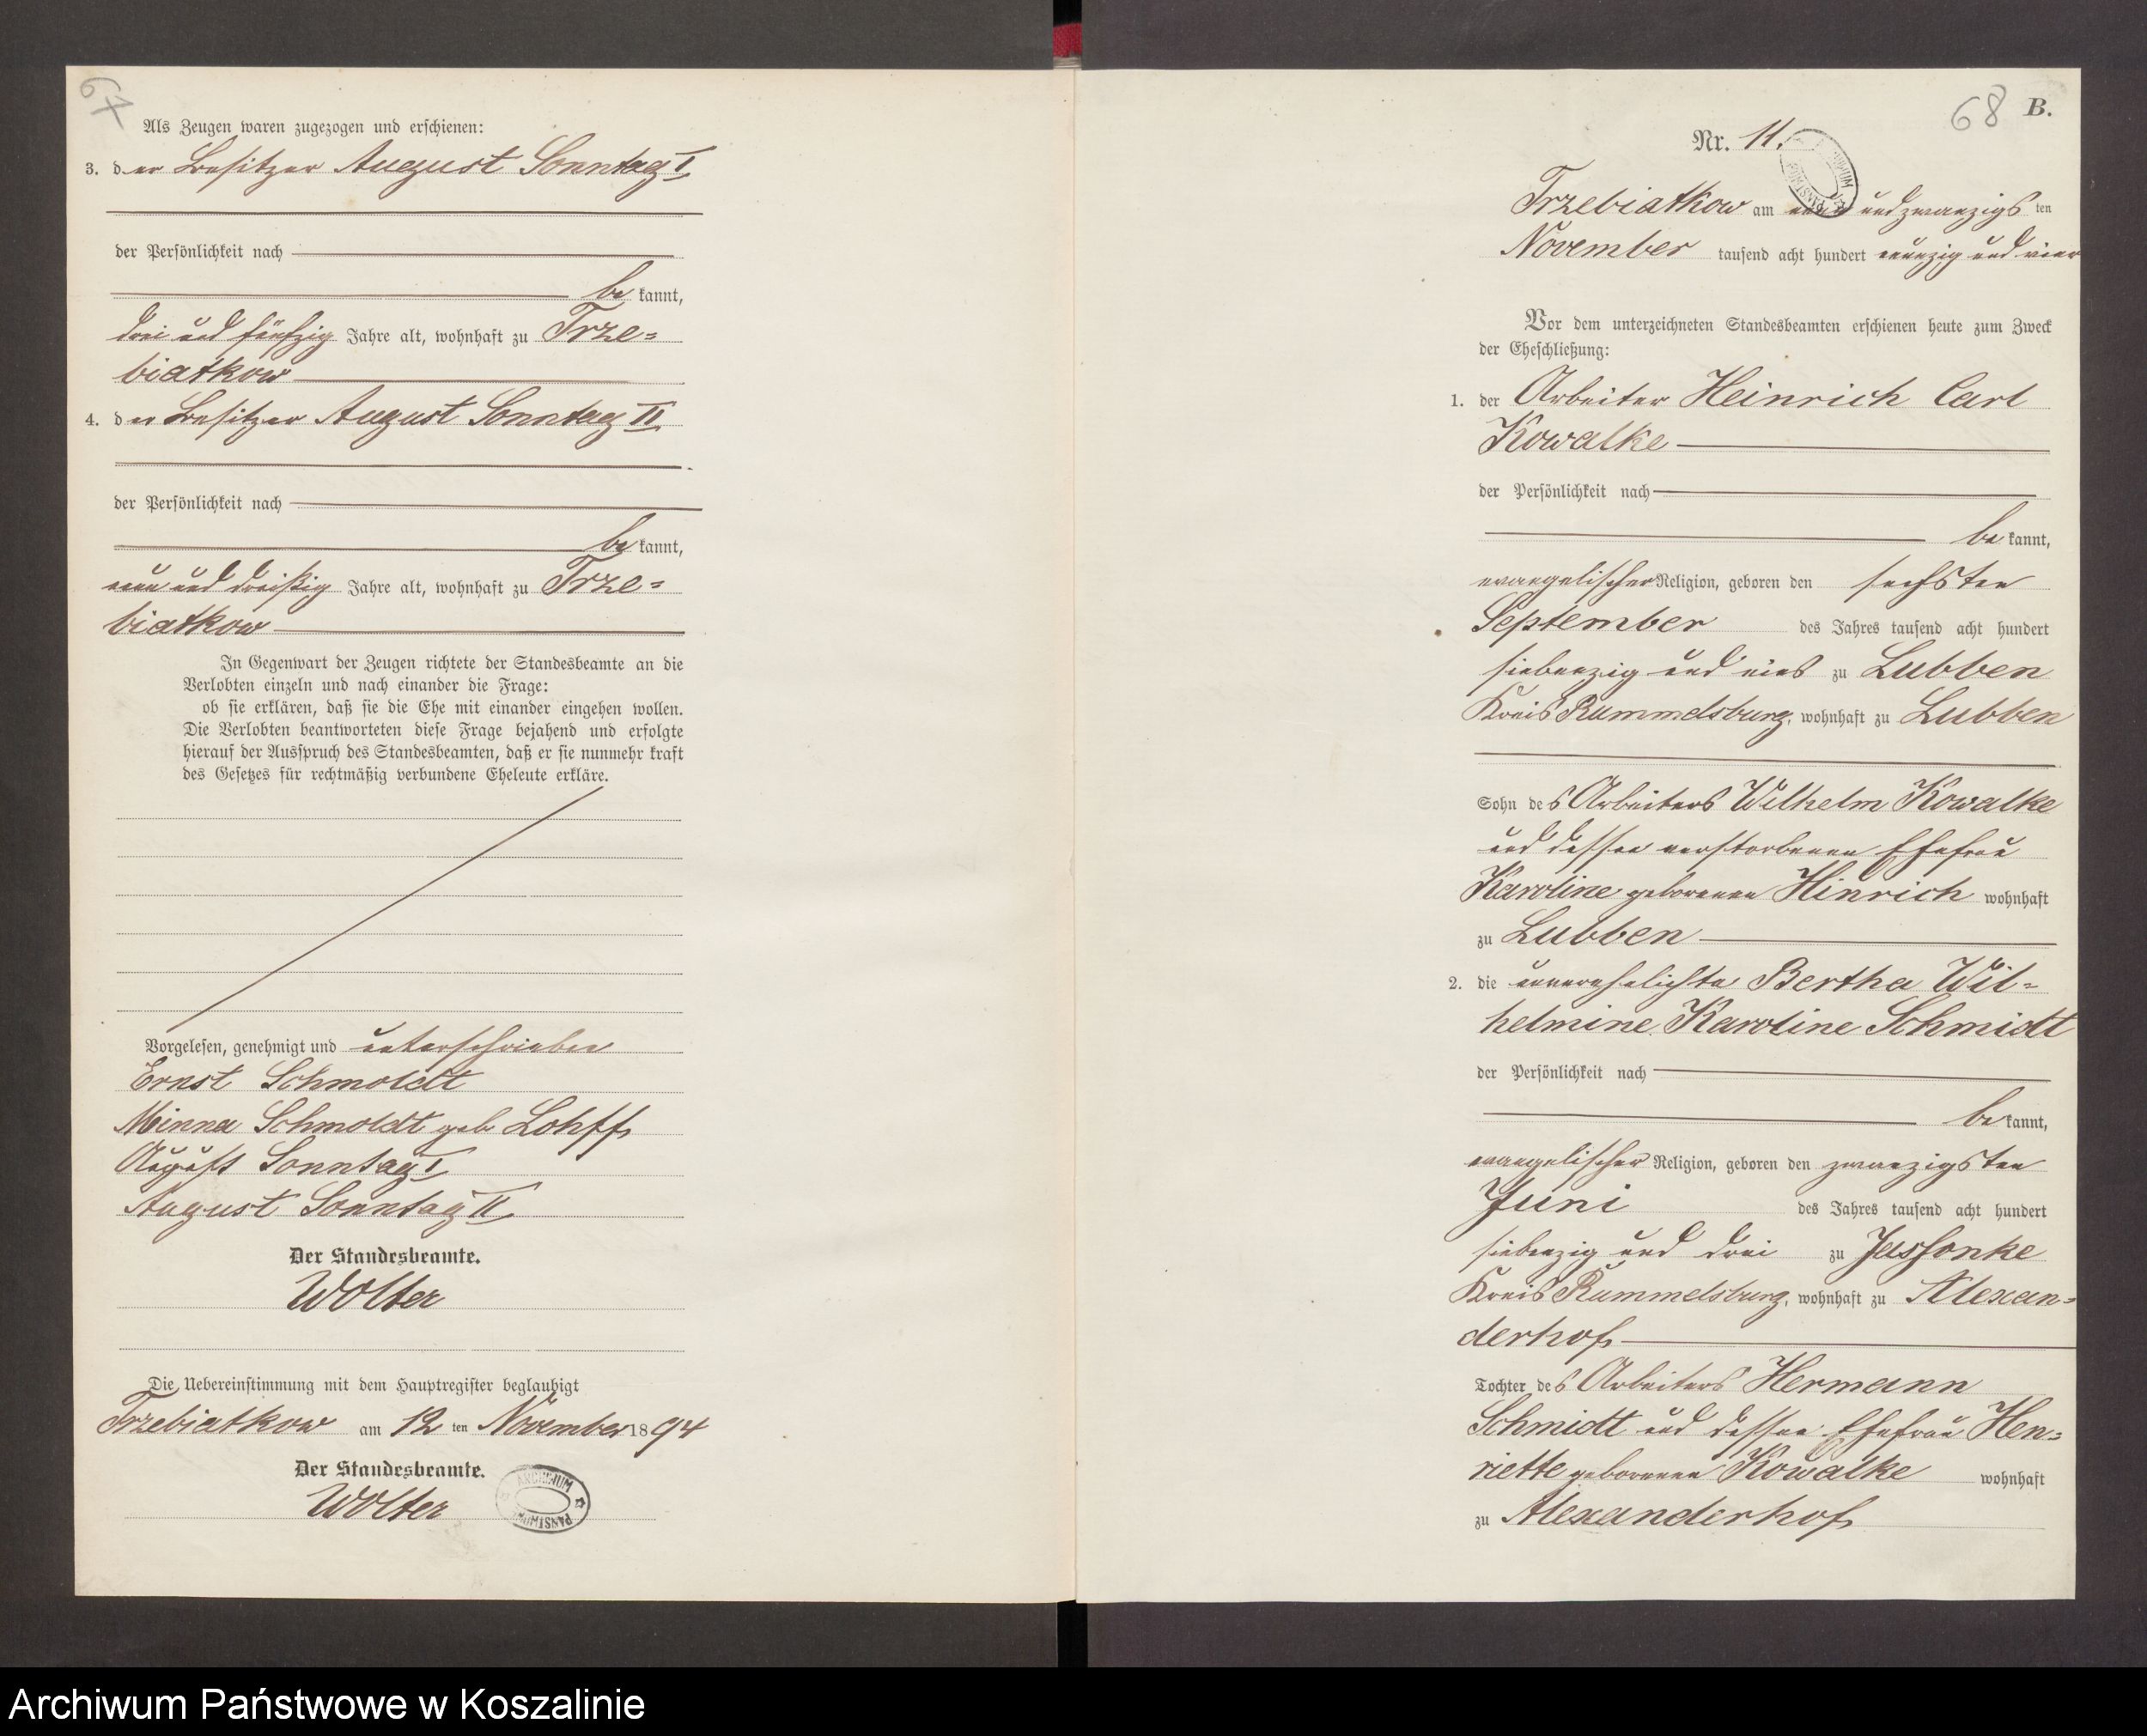 67
Als Zeugen waren zugezogen und erschienen:
3. der Besitzer August Sonntag I
der Persönlichkeit nach
bekannt,
drei und fünfzig Jahre alt, wohnhaft zu Trze=
biatkow
4. der Besitzer August Sonntag II
der Persönlichkeit nach
bekannt,
neun und dreißig Jahre alt, wohnhaft zu Trze=
biatkow
In Gegenwart der Zeugen richtete der Standesbeamte an die
Verlobten einzeln und nach einander die Frage:
ob sie erklären, daß sie die Ehe mit einander eingehen wollen.
Die Verlobten beantworteten diese Frage bejahend und erfolgte
hierauf der Ausspruch des Standesbeamten, daß er sie nunmehr kraft
des Gesetzes für rechtmäßig verbundene Eheleute erkläre.
Vorgelesen, genehmigt und unterschrieben
Ernst Schmoldt
Minna Schmoldt geb Lohff
August Sonntag I
August Sonntag II
Der Standesbeamte.
Wolter
Die Uebereinstimmung mit dem Hauptregister beglaubigt
Trzebiatkow am 12 ten November 1894
Der Standesbeamte.
Wolter
ARCHIWUM PAŃSTWOWE
68 B.
Nr. 11.
Trzebiatkow am und zwanzigsten
November tausend acht hundert neunzig und vier
Vor dem unterzeichneten Standesbeamten erschienen heute zum Zweck
der Eheschließung:
1. der Arbeiter Heinrich Carl
Kowalke
der Persönlichkeit nach
bekannt,
evangelischer Religion, geboren den sechsten
September des Jahres tausend acht hundert
siebenzig und eins zu Lubben
Kreis Rummelsburg, wohnhaft zu Lubben
Sohn des Arbeiters Wilhelm Kowalke
und dessen verstorbenen Ehefrau
Karoline geborenen Hinrich wohnhaft
zu Lubben
2. die unverehelichte Bertha Wil=
helmine Karoline Schmidt
der Persönlichkeit nach
bekannt,
evangelischer Religion, geboren den zwanzigsten
Juni des Jahres tausend acht hundert
siebenzig und drei zu Jassonke
Kreis Rummelsburg, wohnhaft zu Alexan=
derhof
Tochter des Arbeiters Hermann
Schmidt und dessen Ehefrau Hen=
riette geborenen Kowalke wohnhaft
zu Alexanderhof
Archiwum Państwowe w Koszalinie